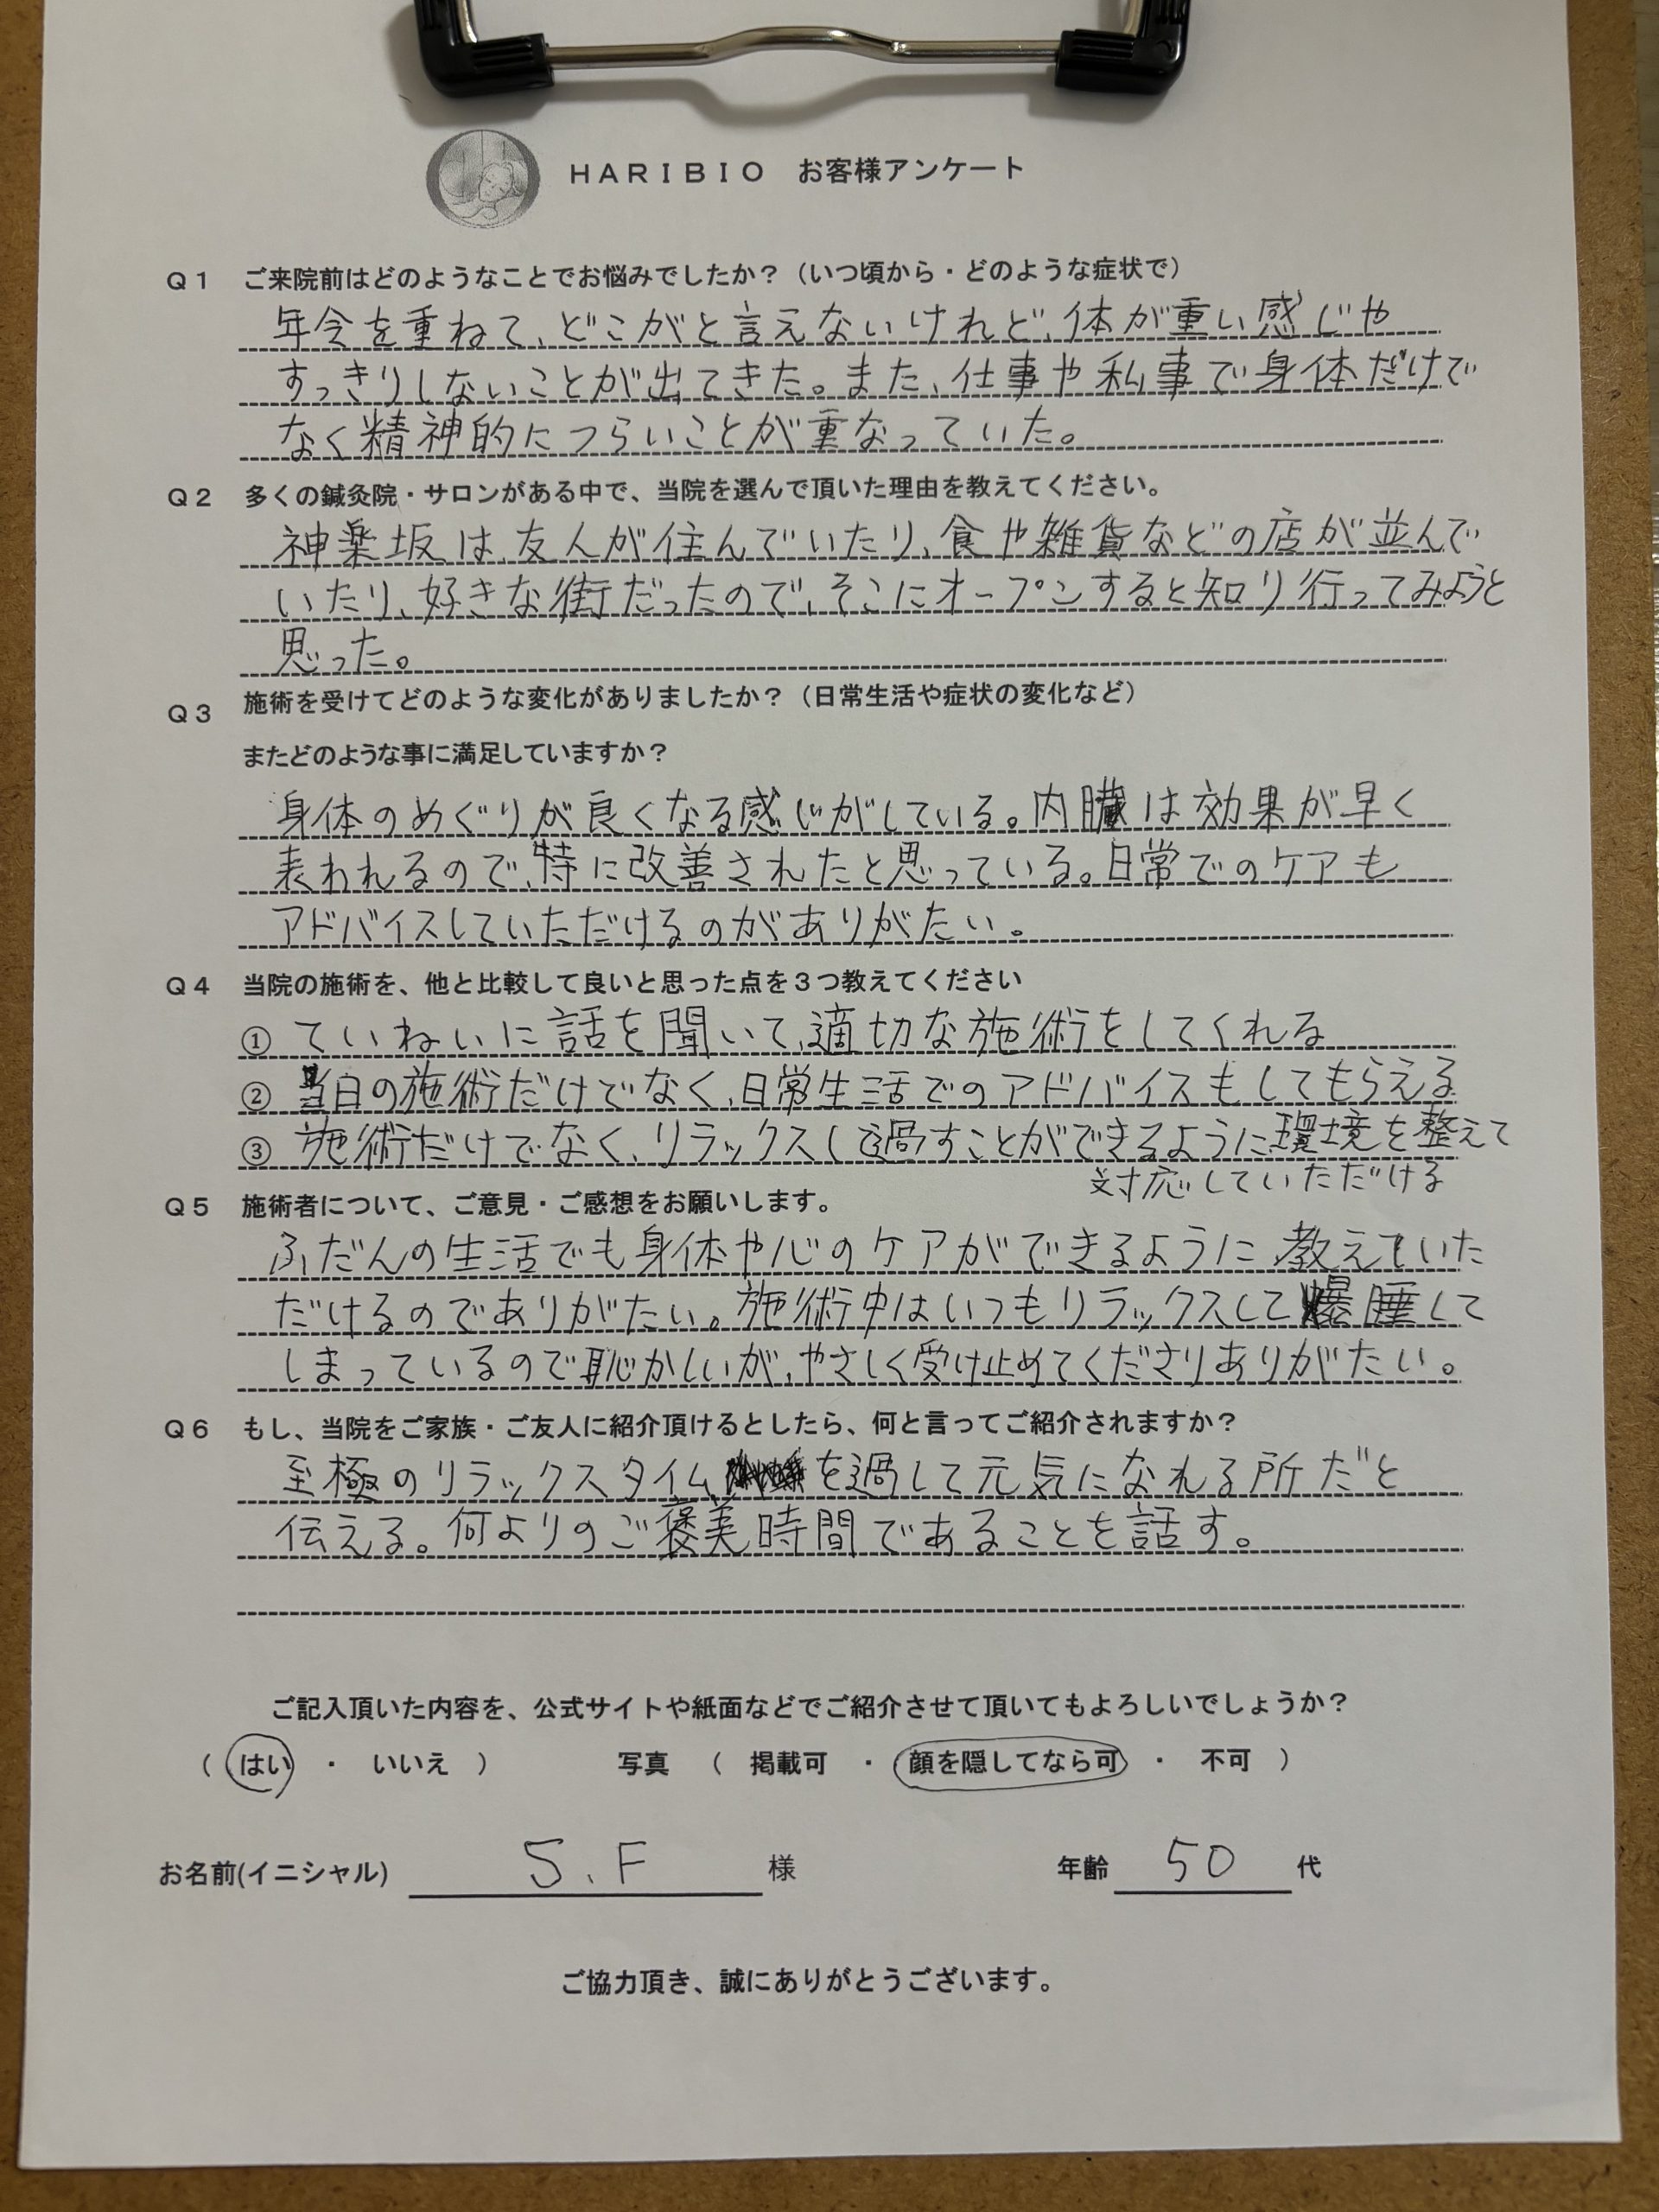 HARIBIO お客様アンケート
Q1 ご来院前はどのようなことでお悩みでしたか?(いつ頃から・どのような症状で)
年令を重ねて、どこがと言えないけれど、体が重い感じや
すっきりしないことが出てきた。また、仕事や私事で身体だけで
なく精神的につらいことが重なっていた。
Q2 多くの鍼灸院・サロンがある中で、当院を選んで頂いた理由を教えてください。
神楽坂は、友人が住んでいたり、食や雑貨などの店が並んで
いたり、好きな街だったので、そこにオープンすると知り行ってみようと
思った。
Q3 施術を受けてどのような変化がありましたか?(日常生活や症状の変化など)
またどのような事に満足していますか?
身体のめぐりが良くなる感じがしている。内臓は効果が早く
表われるので、特に改善されたと思っている。日常でのケアも
アドバイスしていただけるのがありがたい。
Q4 当院の施術を、他と比較して良いと思った点を3つ教えてください
① ていねいに話を聞いて、適切な施術をしてくれる
② 当日の施術だけでなく、日常生活でのアドバイスもしてもらえる
③ 施術だけでなく、リラックスして過すことができるように環境を整えて
対応していただける
Q5 施術者について、ご意見・ご感想をお願いします。
ふだんの生活でも身体や心のケアができるように教えていた
だけるのでありがたい。施術中はいつもリラックスして爆睡して
しまっているので恥かしいが、やさしく受け止めてくださりありがたい。
Q6 もし、当院をご家族・ご友人に紹介頂けるとしたら、何と言ってご紹介されますか?
至極のリラックスタイムを過して元気になれる所だと
伝える。何よりのご褒美時間であることを話す。
ご記入頂いた内容を、公式サイトや紙面などでご紹介させて頂いてもよろしいでしょうか?
( はい ・ いいえ ) 写真 ( 掲載可 ・ 顔を隠してなら可 ・ 不可 )
お名前(イニシャル) S.F 様 年齢 50 代
ご協力頂き、誠にありがとうございます。